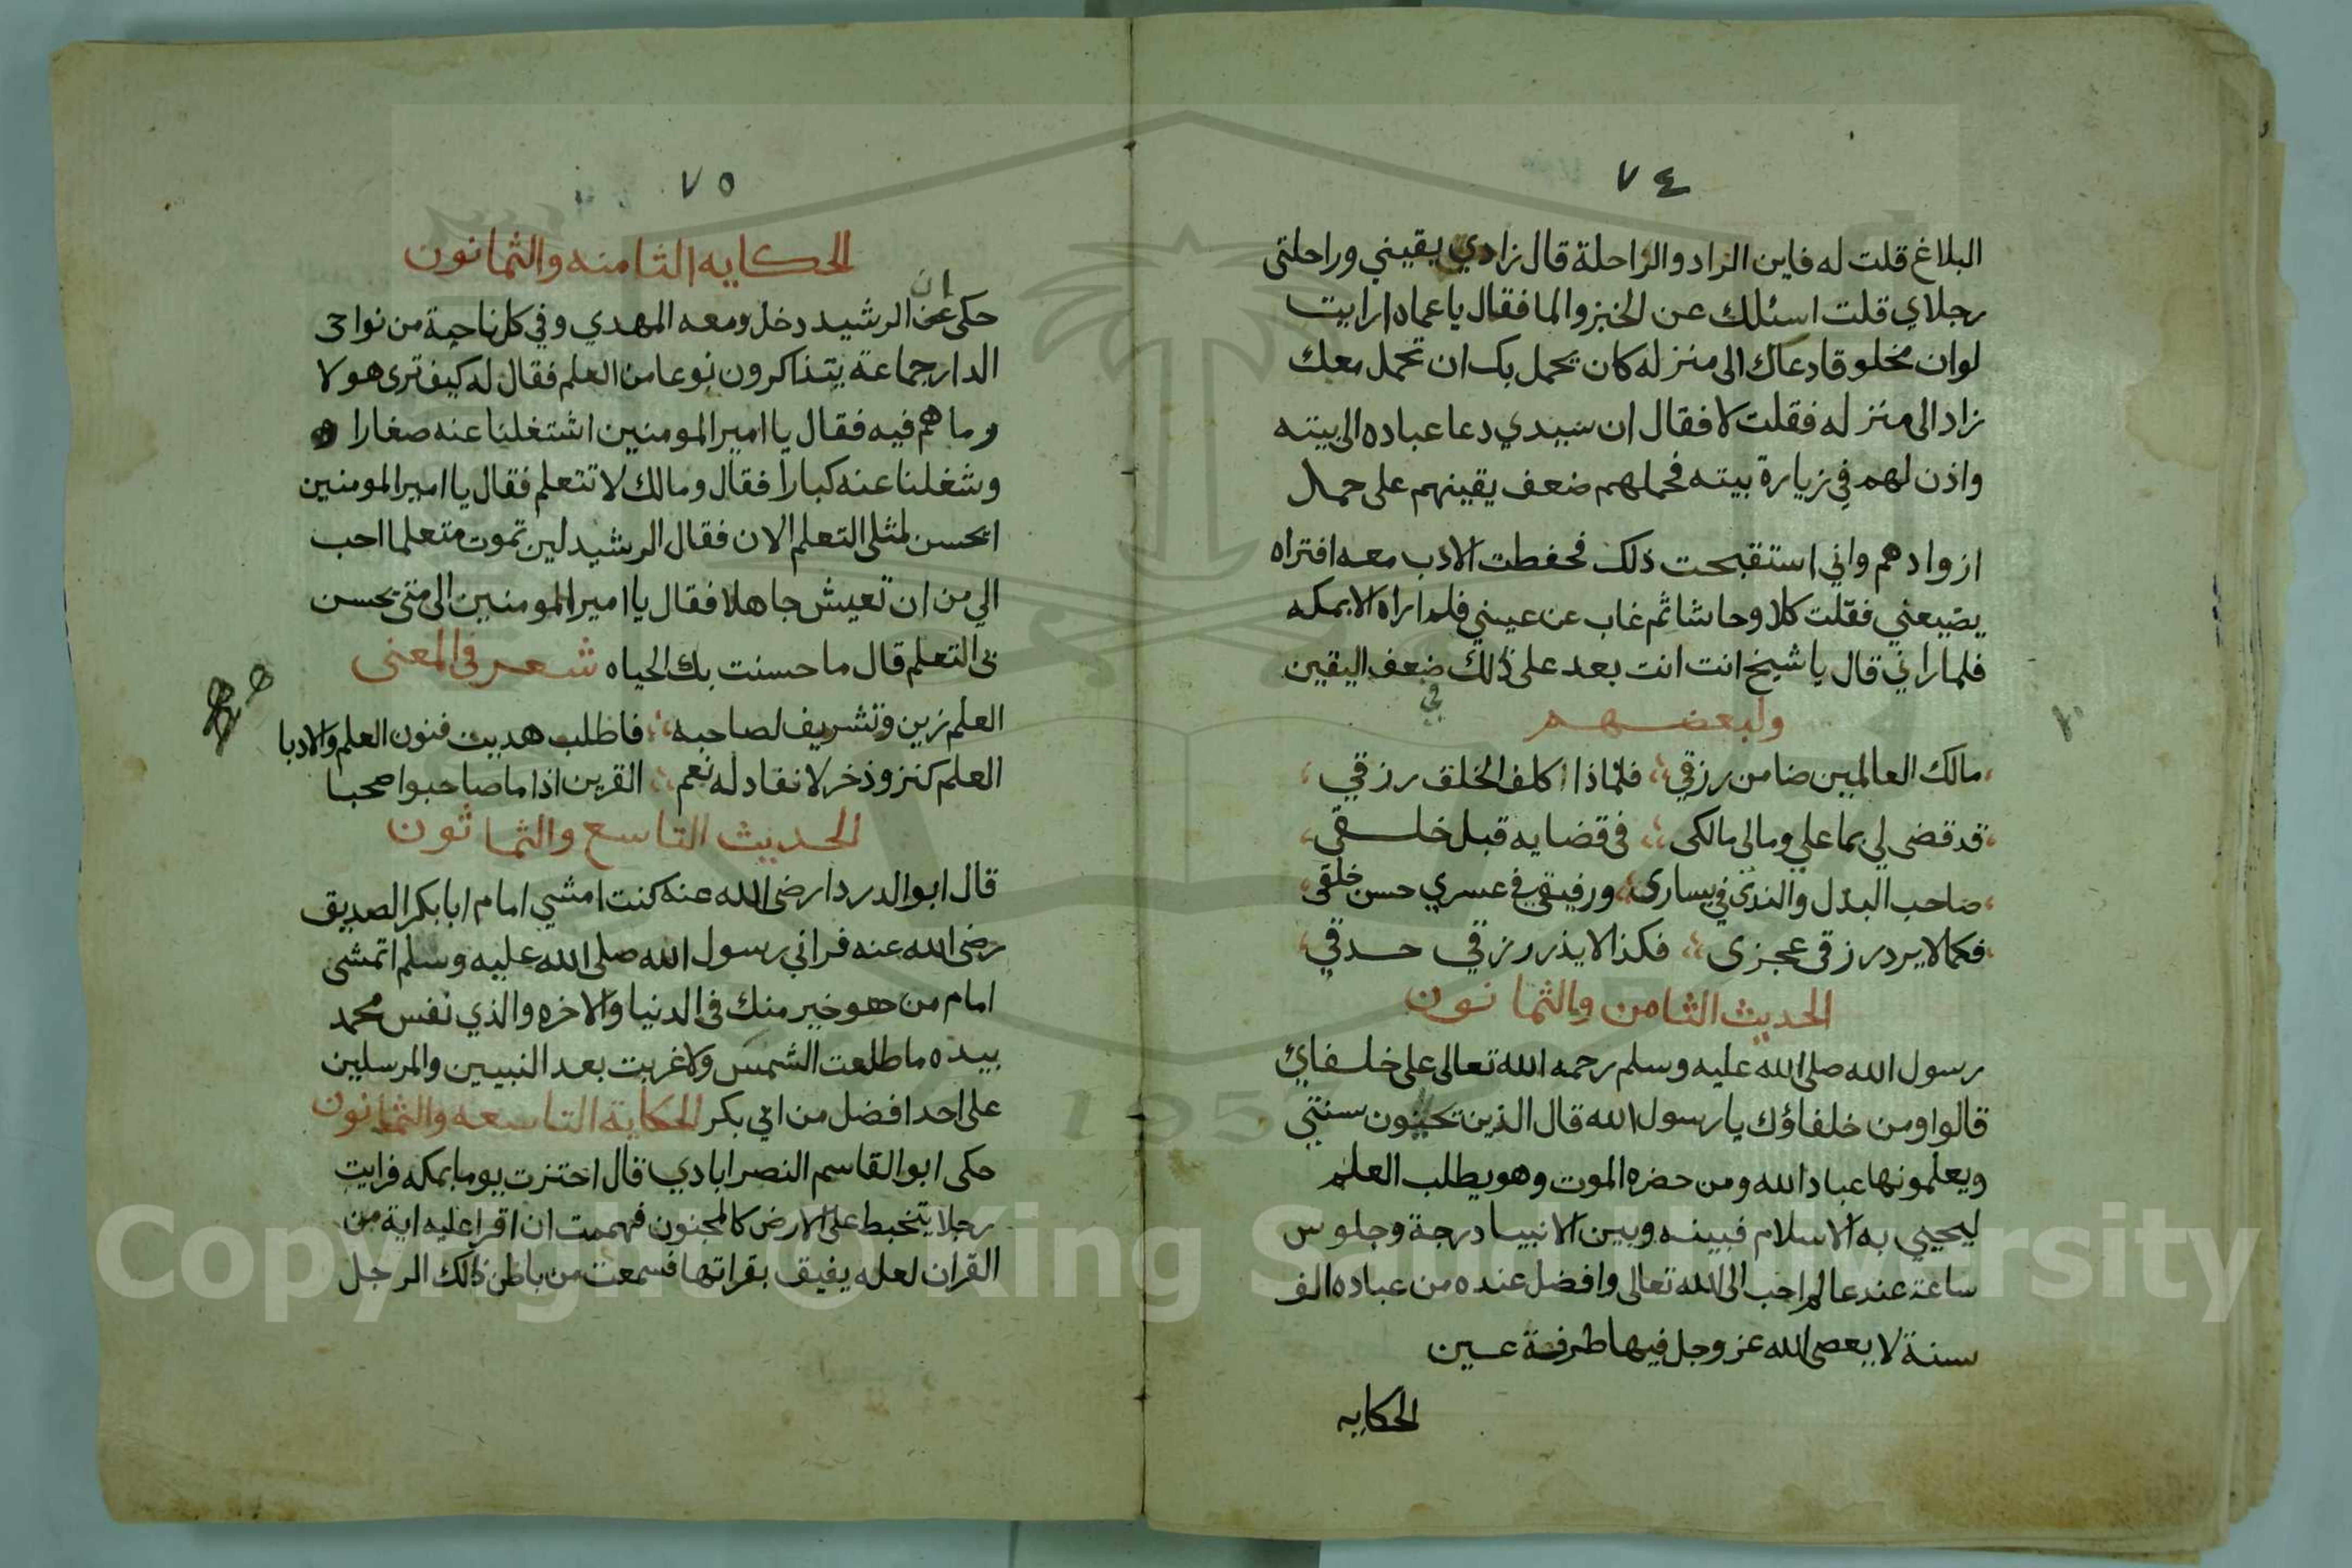 ٧٤
البلاغ قلت له فاين الزاد والراحلة قال زادي يقيني وراحلتى
رجلاي قلت اسئلك عن الخبز والما فقال ياعماه ارايت
لوان مخلوقا دعاك الى منزله كان يحمل بك ان تحمل معك
زاد الى منزله فقلت لا فقال ان سيدي دعا عباده الى بيته
واذن لهم في زيارة بيته فحملهم ضعف يقينهم على حمل
ازوادهم واني استقبحت ذلك فحفطت الادب معه افتراه
يضيعني فقلت كلا وحاشا ثم غاب عن عيني فلم اراه الابمكه
فلما راني قال ياشيخ انت انت بعد على ذلك ضعف اليقين
في
ولبعضهم
مالك العالمين ضامن رزقي فلماذا اكلف الخلق رزقي
قد قضى لي بما علي ومالى مالكى فى قضايه قبل خلقي
صاحب البذل والندى في يسارى ورفيقى في عسري حسن خلقى
فكما لا يرد رزقى عجزى فكذا لا يذر رزقي حدقي
الحديث الثامن والثمانون
رسول الله صلى الله عليه وسلم رحمه الله تعالى على خلفاي
قالوا ومن خلفاؤك يا رسول الله قال الذين تحيون سنتي
ويعلمونها عباد الله ومن حضره الموت وهو يطلب العلم
ليحيي به الاسلام فبينه وبين الانبيا درجة وجلوس
ساعة عند عالم احب الى الله تعالى وافضل عنده من عباده الف
سنة لا يعصى الله عز وجل فيها طرفة عين
الحكايه
٧٥
الحكايه الثامنه والثمانون
ان
حكى عن الرشيد دخل ومعه المهدي وفي كل ناحية من نواحى
الدار جماعة يتذاكرون نوعا من العلم فقال له كيف ترى هولا
وما هم فيه فقال يا امير المومنين اشتغلنا عنه صغارا
وشغلنا عنه كبارا فقال ومالك لا تتعلم فقال يا امير المومنين
ايحسن لمثلى التعلم الان فقال الرشيد لين تموت متعلما احب
الي من ان تعيش جاهلا فقال يا امير المومنين الى متى يحسن
بى التعلم قال ما حسنت بك الحياه شعر فى المعنى
العلم زين وتشريف لصاحبه فاطلب هديت فنون العلم والادبا
العلم كنز وذخر لا نفاد له نعم القرين اذا ما صاحبوا صحبا
الحديث التاسع والثمانون
قال ابو الدردا رضى الله عنه كنت امشي امام ابا بكر الصديق
رضى الله عنه فراني رسول الله صلى الله عليه وسلم اتمشى
امام من هو خير منك فى الدنيا والاخره والذي نفس محمد
بيده ما طلعت الشمس ولا غربت بعد النبيين والمرسلين
على احد افضل من ابي بكر الحكاية التاسعه والثمانون
حكى ابو القاسم النصر ابادي قال اختزت يوما بمكه فرايت
رجلا يتخبط على الارض كالمجنون فهممت ان اقرا عليه اية من
القران لعله يفيق بقراتها فسمعت من باطن ذالك الرجل
Copyright © King Saud University
1957